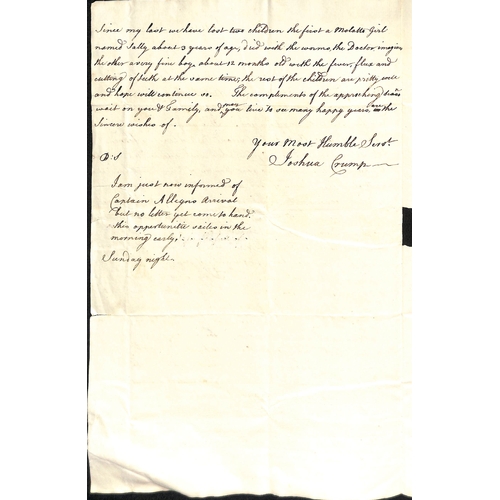 Since my last we have lost two children the first a Molatto Girl
named Sally about 3 years of age, died with the worms, the Doctor imagins
the other a very fine boy about 12 months old with the fever, flux and
cutting of teeth at the same time, the rest of the children are pritty well
and hope will continue so. The compliments of the approching Season
wait on you & Family, and may you live to see many happy years, are the
Sincere wishes of.
Your Most Humble Servt.
Joshua Crump
P:S
I am just now informed of
Captain Allegno Arrival
but no letter yet come to hand,
this opportunitie sailes in the
morning early;
Sunday night.